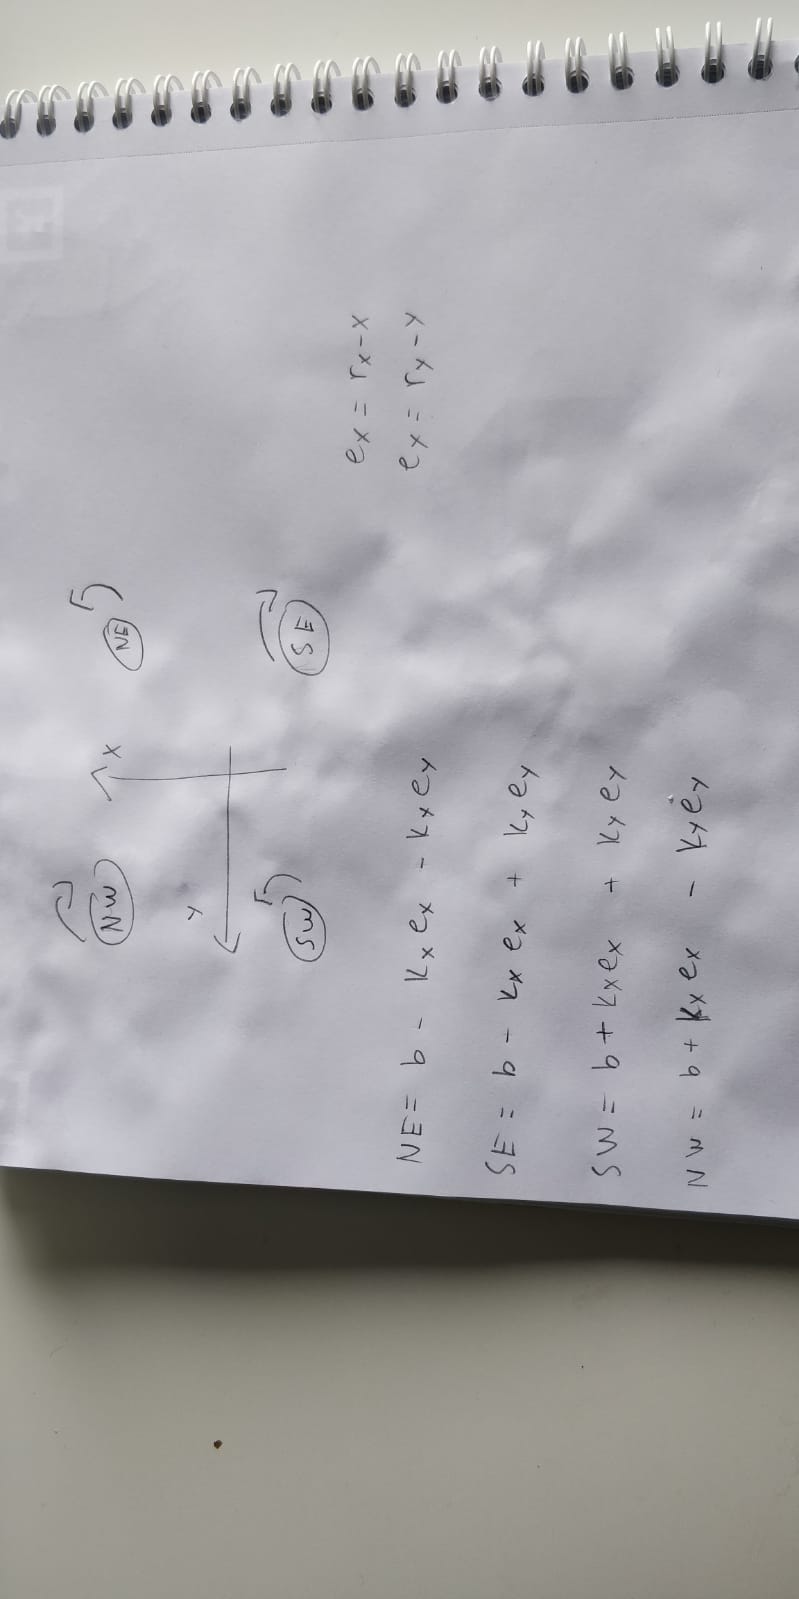 NW X NE
Y
SW SE
ex = rx - x
NE = b - Kx ex - Ky ey
ey = ry - y
SE = b - Kx ex + Ky ey
SW = b + Kx ex + Ky ey
NW = b + Kx ex - Ky ey